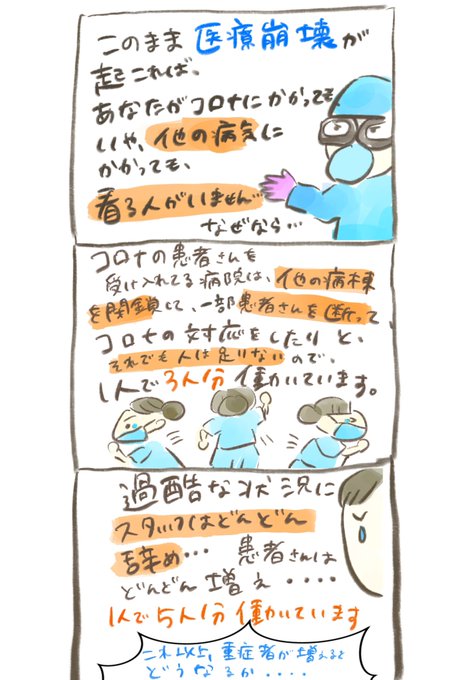 このまま医療崩壊が
起これば、
あなたがコロナにかかっても
いや、他の病気に
かかっても、
看る人がいません…
なぜなら…
コロナの患者さんを
受け入れてる病院は、他の病棟
を閉鎖して、一部患者さんを断って
コロナの対応をしたりと、
それでも人は足りないので、
1人で3人分働いています。
過酷な状況に
スタッフはどんどん
辞め… 患者さんは
どんどん増え‥‥
1人で5人分働いています
これ以上、重症者が増えると
どうなるか‥‥